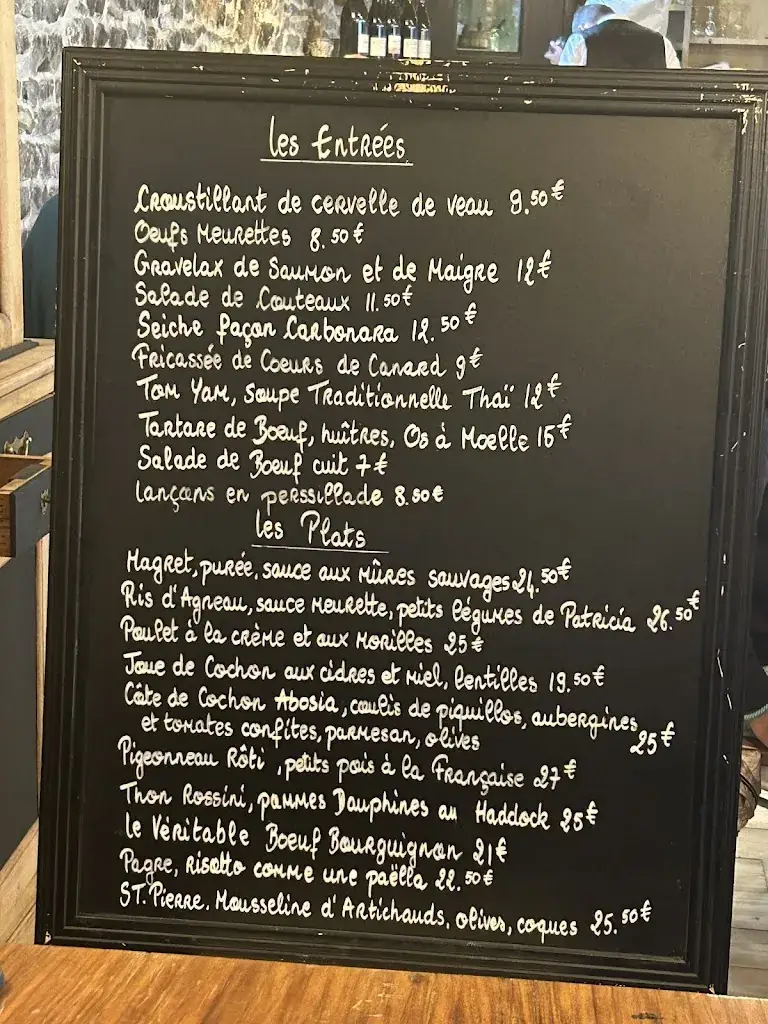 Les Entrées
Croustillant de cervelle de veau 9.50€
Oeufs Meurettes 8.50€
Gravelax de Saumon et de Maigre 12€
Salade de Couteaux 11.50€
Seiche façon Carbonara 12.50€
Fricassée de Coeurs de Canard 9€
Tom Yam, Soupe Traditionnelle Thaï 12€
Tartare de Boeuf, huîtres, Os à Moelle 15€
Salade de Boeuf cuit 7€
Lançons en perssillade 8.50€
Les Plats
Magret, purée, sauce aux mûres sauvages 24.50€
Ris d'Agneau, sauce meurette, petits légumes de Patricia 26.50€
Poulet à la crème et aux Morilles 25€
Joue de Cochon aux cidres et miel, lentilles 19.50€
Côte de Cochon Abosia, coulis de piquillos, aubergines
et tomates confites, parmesan, olives 25€
Pigeonneau Rôti, petits pois à la Française 27€
Thon Rossini, pommes Dauphines au Haddock 25€
Le Véritable Boeuf Bourguignon 21€
Pagre, Risotto comme une paëlla 22.50€
ST. Pierre. Mousseline d'Artichauds, olives, coques 25.50€